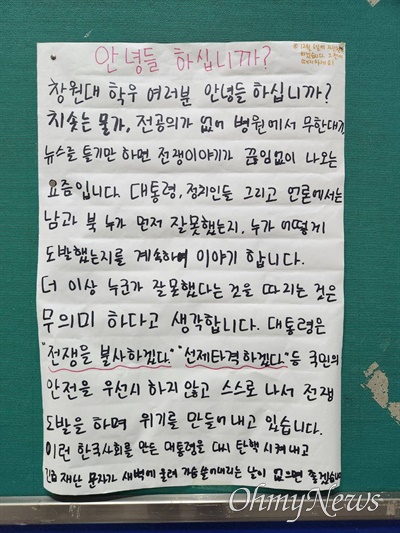 안녕들 하십니까?
창원대 학우 여러분 안녕들 하십니까?
치솟는 물가, 전공의가 없어 병원에서 무한대기
뉴스를 틀기만 하면 전쟁이야기가 끊임없이 나오는
요즘입니다. 대통령, 정치인들 그리고 언론에서는
남과 북 누가 먼저 잘못했는지, 누가 어떻게
도발했는지를 계속하여 이야기 합니다.
더 이상 누군가 잘못했다는 것을 따지는 것은
무의미 하다고 생각합니다. 대통령은
"전쟁을 불사하겠다." "선제타격하겠다." 등 국민의
안전을 우선시 하지 않고 스스로 나서 전쟁
도발을 하며 위기를 만들어 내고 있습니다.
이런 한국사회를 만든 대통령을 다시 탄핵 시켜내고
긴급 재난 문자가 새벽에 울려 가슴 쓸어내리는 날이 없으면 좋겠습니다
OhmyNews